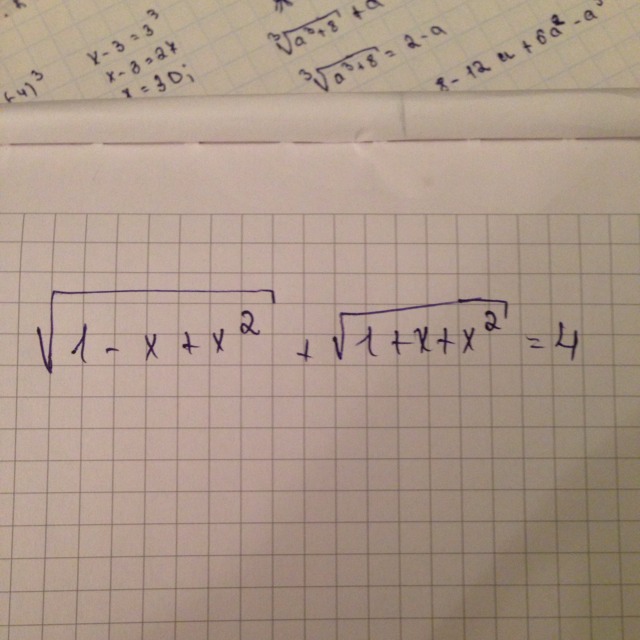 x-3=3³
x-3=27
x=30;
∛(a³+8) = 2-a
8-12a+6a²-a³
√(1-x+x²) + √(1+x+x²) = 4